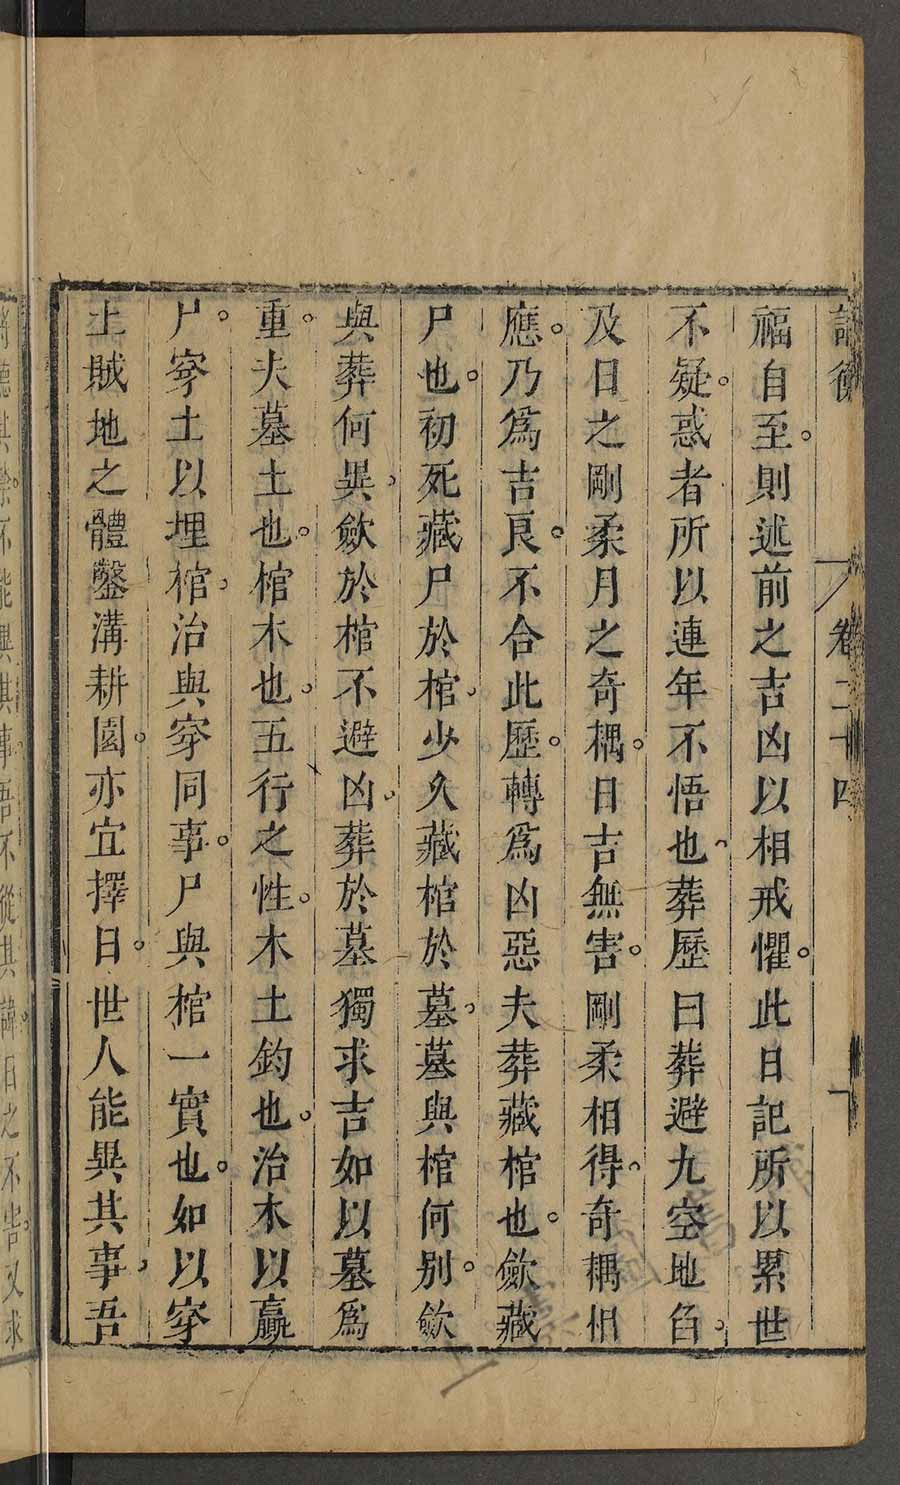 論衡 卷二十四
福自至。則述前之吉凶以相戒懼。此日記所以累世
不疑。惑者所以連年不悟也、葬歷曰葬避九空地臽。
及日之剛柔月之奇耦。日吉無害。剛柔相得、奇耦相
應。乃爲吉良。不合此歷。轉爲凶惡夫葬藏棺也。斂藏
尸也。初死藏尸於棺、少久藏棺於墓、墓與棺何別。斂
與葬何異、斂於棺不避凶、葬於墓獨求吉如以墓爲
重。夫墓土也。棺木也、五行之性。木土鈞也。治木以贏
尸。穿土以埋棺、治與穿同事。尸與棺一實也。如以穿
土賊地之體鑿溝耕園。亦宜擇日。世人能異其事、吾
將聽其禁不能異其事。吾不從其諱。日之不害。又求